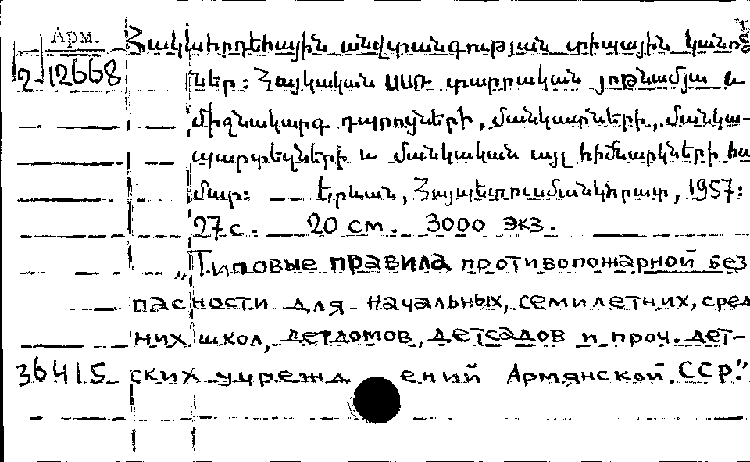 Арм. Հակահրդեհային անվտանգության տիպային կանոն-
2-12668 ներ: Հայկական ՍՍՌ տարրական յոթնամյա և
միջնակարգ դպրոցների, մանկատների, մանկա-
պարտեզների և մանկական այլ հիմնարկների հա
մար: Երևան, Հայպետուսմանկհրատ, 1957:
27 с. 20 см. 3000 экз.
„Типовые правила противопожарной без
пасности для начальных, семилетних, сред
них школ, детдомов, детсадов и проч. дет-
36415 ских учрежд ений Армянской ССР."